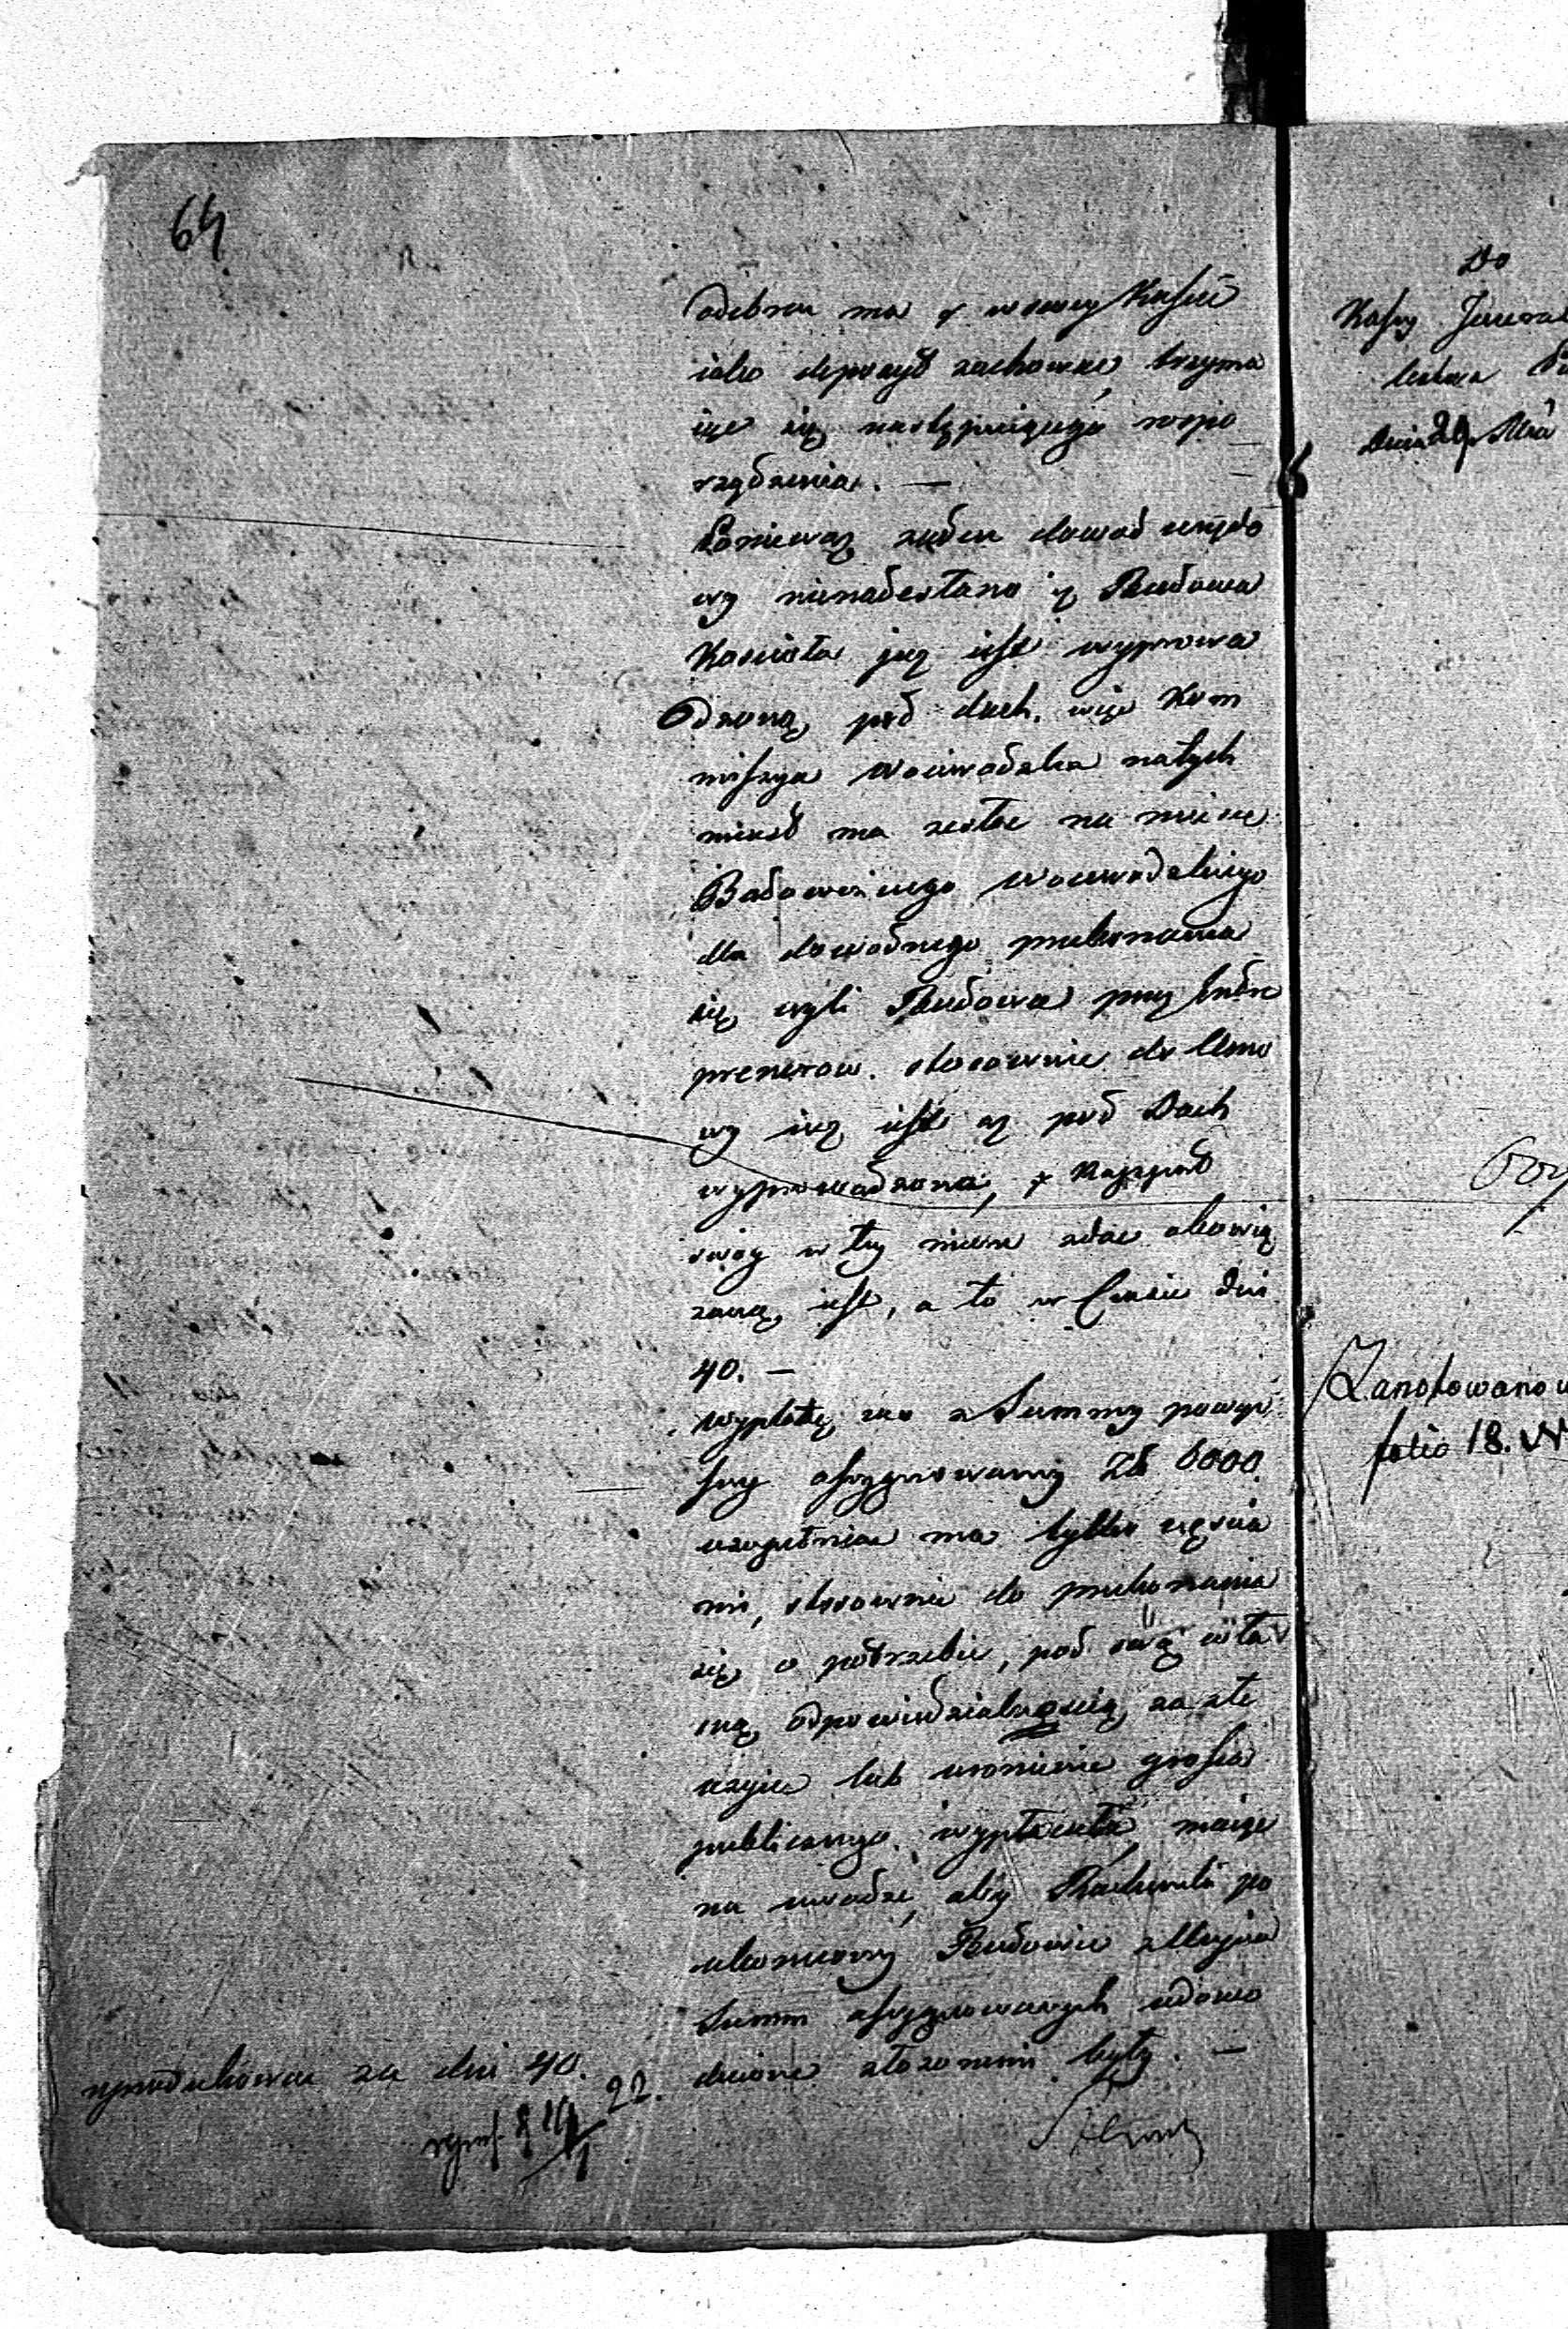 64
odebrać ma y w swey Kassie
iako depozyt zachować, trzyma
iąc się następuiącego rospo
rządzenia. —
Ponieważ żaden dowod urzędo
wy nienadesłano iż Budowa
Kościoła już iest wyprowa
dzoną pod dach. więc Kom
missya Woiewodzka natych
miast ma zesłać na mieisce
Budowniczego Woiewodzkiego
dla dowodnego przekonania
się czyli Budowa przez Entre
prenerow. stosownie do Umo
wy iuż iest aż pod Dach
wyprowadzona, y Rapport
swoy w tey mierze zdać obowią
zaną iest, a to w Czasie dni
40. —
Wypłatę zaś z Summy powyż
szey assygnowaney Zł 6000.
uzupełniać ma tylko częścia
mi, stosownie do przekonania
się o potrzebie, pod swą wła
sną odpowiedzialnością za złe
użycie lub uronienie grosza
publicznego wypłacała, maiąc
na uwadze, aby Rachunki po
ukończoney Budowie z Użycia
Summ assygnowanych udowo
dnione złożonemi były. —
reprodukować za dni 40.
22.
Do
Kassy Jeneral
Dnia 29 Mca
Zanotowano w
folio 18. N